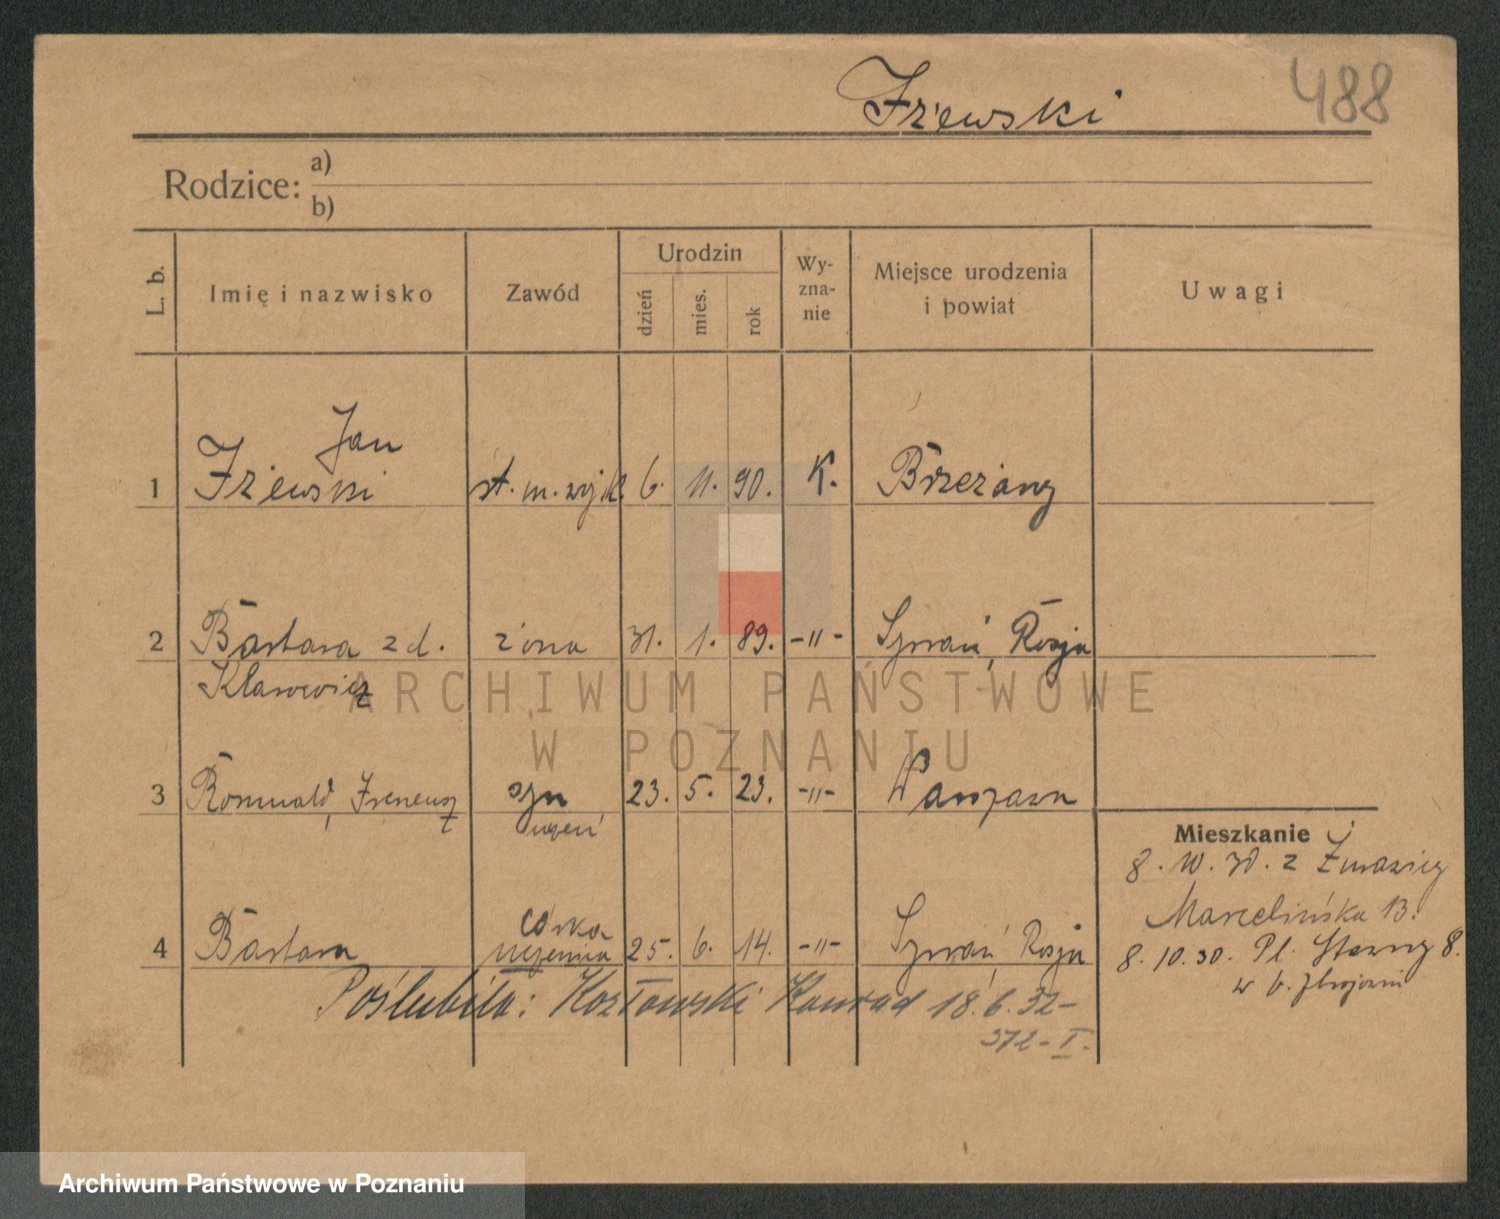 Iżewski 488
Rodzice: a)
b)
L. b. Imię i nazwisko Zawód Urodzin dzień mies. rok Wy-zna-nie Miejsce urodzenia i powiat Uwagi
Jan
1 Iżewski st. m. wojsk. 6. 11. 90. K. Brzeżany
2 Barbara z d. żona 31. 1. 89. -"- Syzrań, Rosja
Klarowicz
3 Romuald, Ireneusz syn 23. 5. 23. -"- Warszawa
uczeń
Mieszkanie
8. 10. 30. z Żurawicy
córka
Marcelińska 13.
4 Barbara uczennica 25. 6. 14. -"- Syzrań, Rosja
8. 10. 30. Pl. Stawny 8.
w b. Zbrojowni
Poślubiła: Kozłowski Konrad 18.6.32-
372-I.
ARCHIWUM PAŃSTWOWE
W POZNANIU
Archiwum Państwowe w Poznaniu